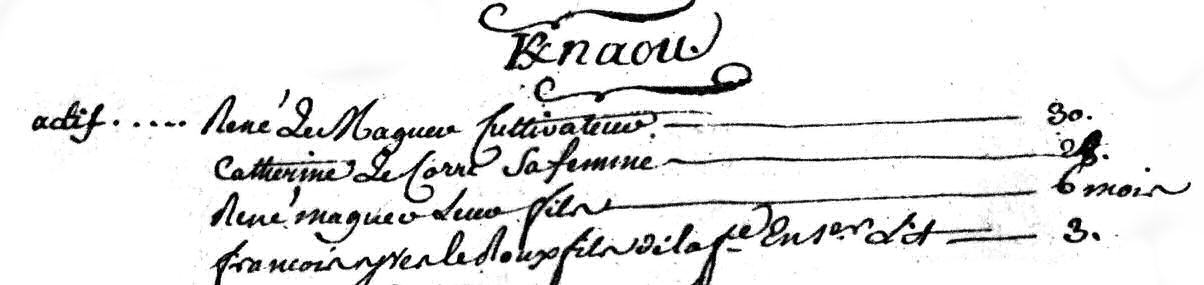 K/naou.
actif..... René Le Magueur Cultivateur. 30.
Catherine Le Corre Sa femme 28.
René magueur Leur fils 6 mois
francois yves le Roux fils de la fe En 1er Lit 3.